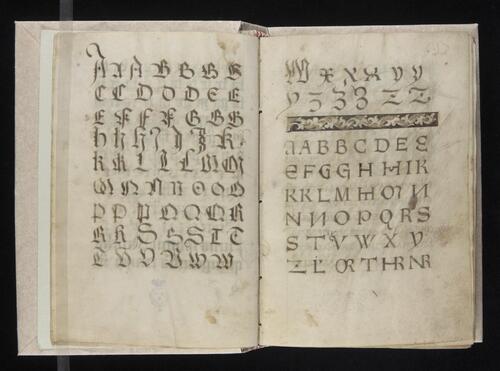 A A A B B B G
C C D D D E E
E F F F G G G
h h H I J K K
K K L L L M M
M N N N O O O
P P P Q Q Q R
R R S S S T T
T V V V W W
W X X X Y Y
Y Z Z Z Z Z
A A B B C D E E
E F G G H H I K
K K L M M M N
N N O P Q R S
S T V W X Y
Z L OR T HR NR